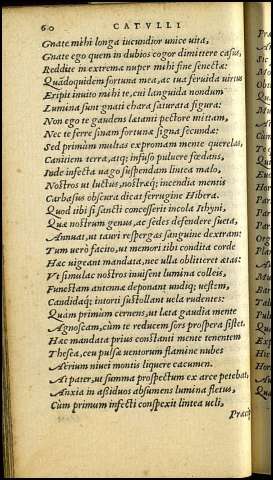 60 CATVLLI
Gnate mihi longa iucundior unice uita,
Gnate ego quem in dubios cogor dimittere casus,
Reddite in extrema nuper mihi fine senectæ:
Quandoquidem fortuna mea, ac tua feruida uirtus
Eripit inuito mihi te, cui languida nondum
Lumina sunt gnati chara saturata figura:
Non ego te gaudens lætanti pectore mittam,
Nec te ferre sinam fortunæ signa secundæ:
Sed primùm multas expromam mente querelas,
Canitiem terra, atq; infuso puluere fœdans,
Inde infecta uago suspendam lintea malo,
Nostros ut luctus, nostræq; incendia mentis
Carbasus obscura dicat ferrugine Hibera.
Quod tibi si sancti concesserit incola Ithyni,
Quæ nostrum genus, ac sedes defendere sueta,
Annuat, ut tauri respergas sanguine dextram:
Tum uerò facito, ut memori tibi condita corde
Hæc uigeant mandata, nec ulla obliteret ætas:
Vt simulac nostros inuisent lumina colleis,
Funestam antennæ deponant undiq; uestem,
Candidaq; intorti sustollant uela rudentes:
Quam primùm cernens, ut læta gaudia mente
Agnoscam, cùm te reducem sors prospera sistet.
Hæc mandata prius constanti mente tenentem
Thesea, ceu pulsæ uentorum flamine nubes
Aërium niuei montis liquere cacumen.
At pater, ut summa prospectum ex arce petebat,
Anxia in assiduos absumens lumina fletus,
Cùm primum infecti conspexit lintea ueli,
Præci